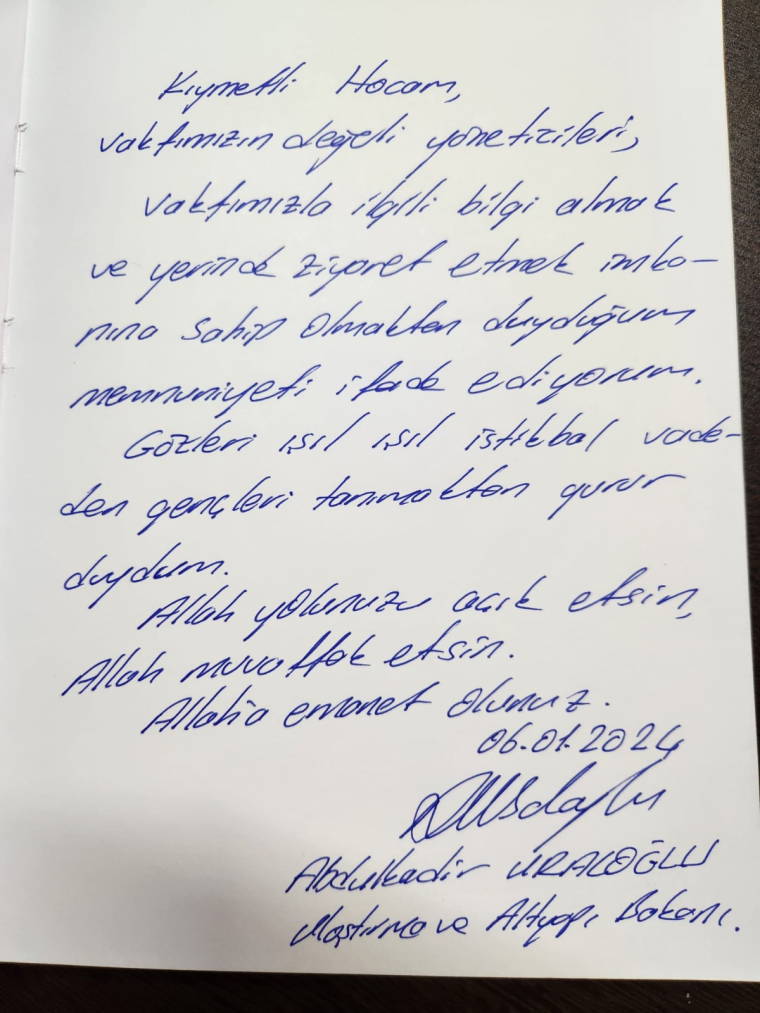 Kıymetli Hocam,
Vakfımızın değerli yöneticileri,
Vakfımızla ilgili bilgi almak
ve yerinde ziyaret etmek imka-
nına sahip olmaktan duyduğum
memnuniyeti ifade ediyorum.
Gözleri ışıl ışıl istikbal vade-
den gençleri tanımaktan gurur
duydum.
Allah yolunuzu açık etsin,
Allah muvaffak etsin.
Allah'a emanet olunuz.
06.01.2024
Abdulkadir URALOĞLU
Ulaştırma ve Altyapı Bakanı.